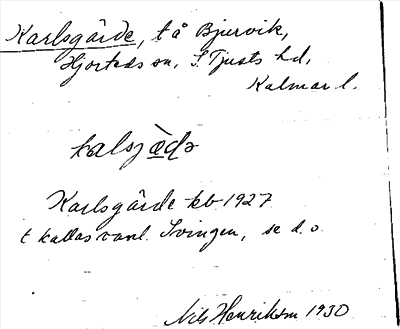 Karlsgärde, t å Bjervik,
Hjorteds sn, S. Tjusts hd,
Kalmar l.
kalsjæ̀də
Karlsgärde kb 1927
t kallas vanl. Svingen, se d. o.
Nils Henrikson 1930